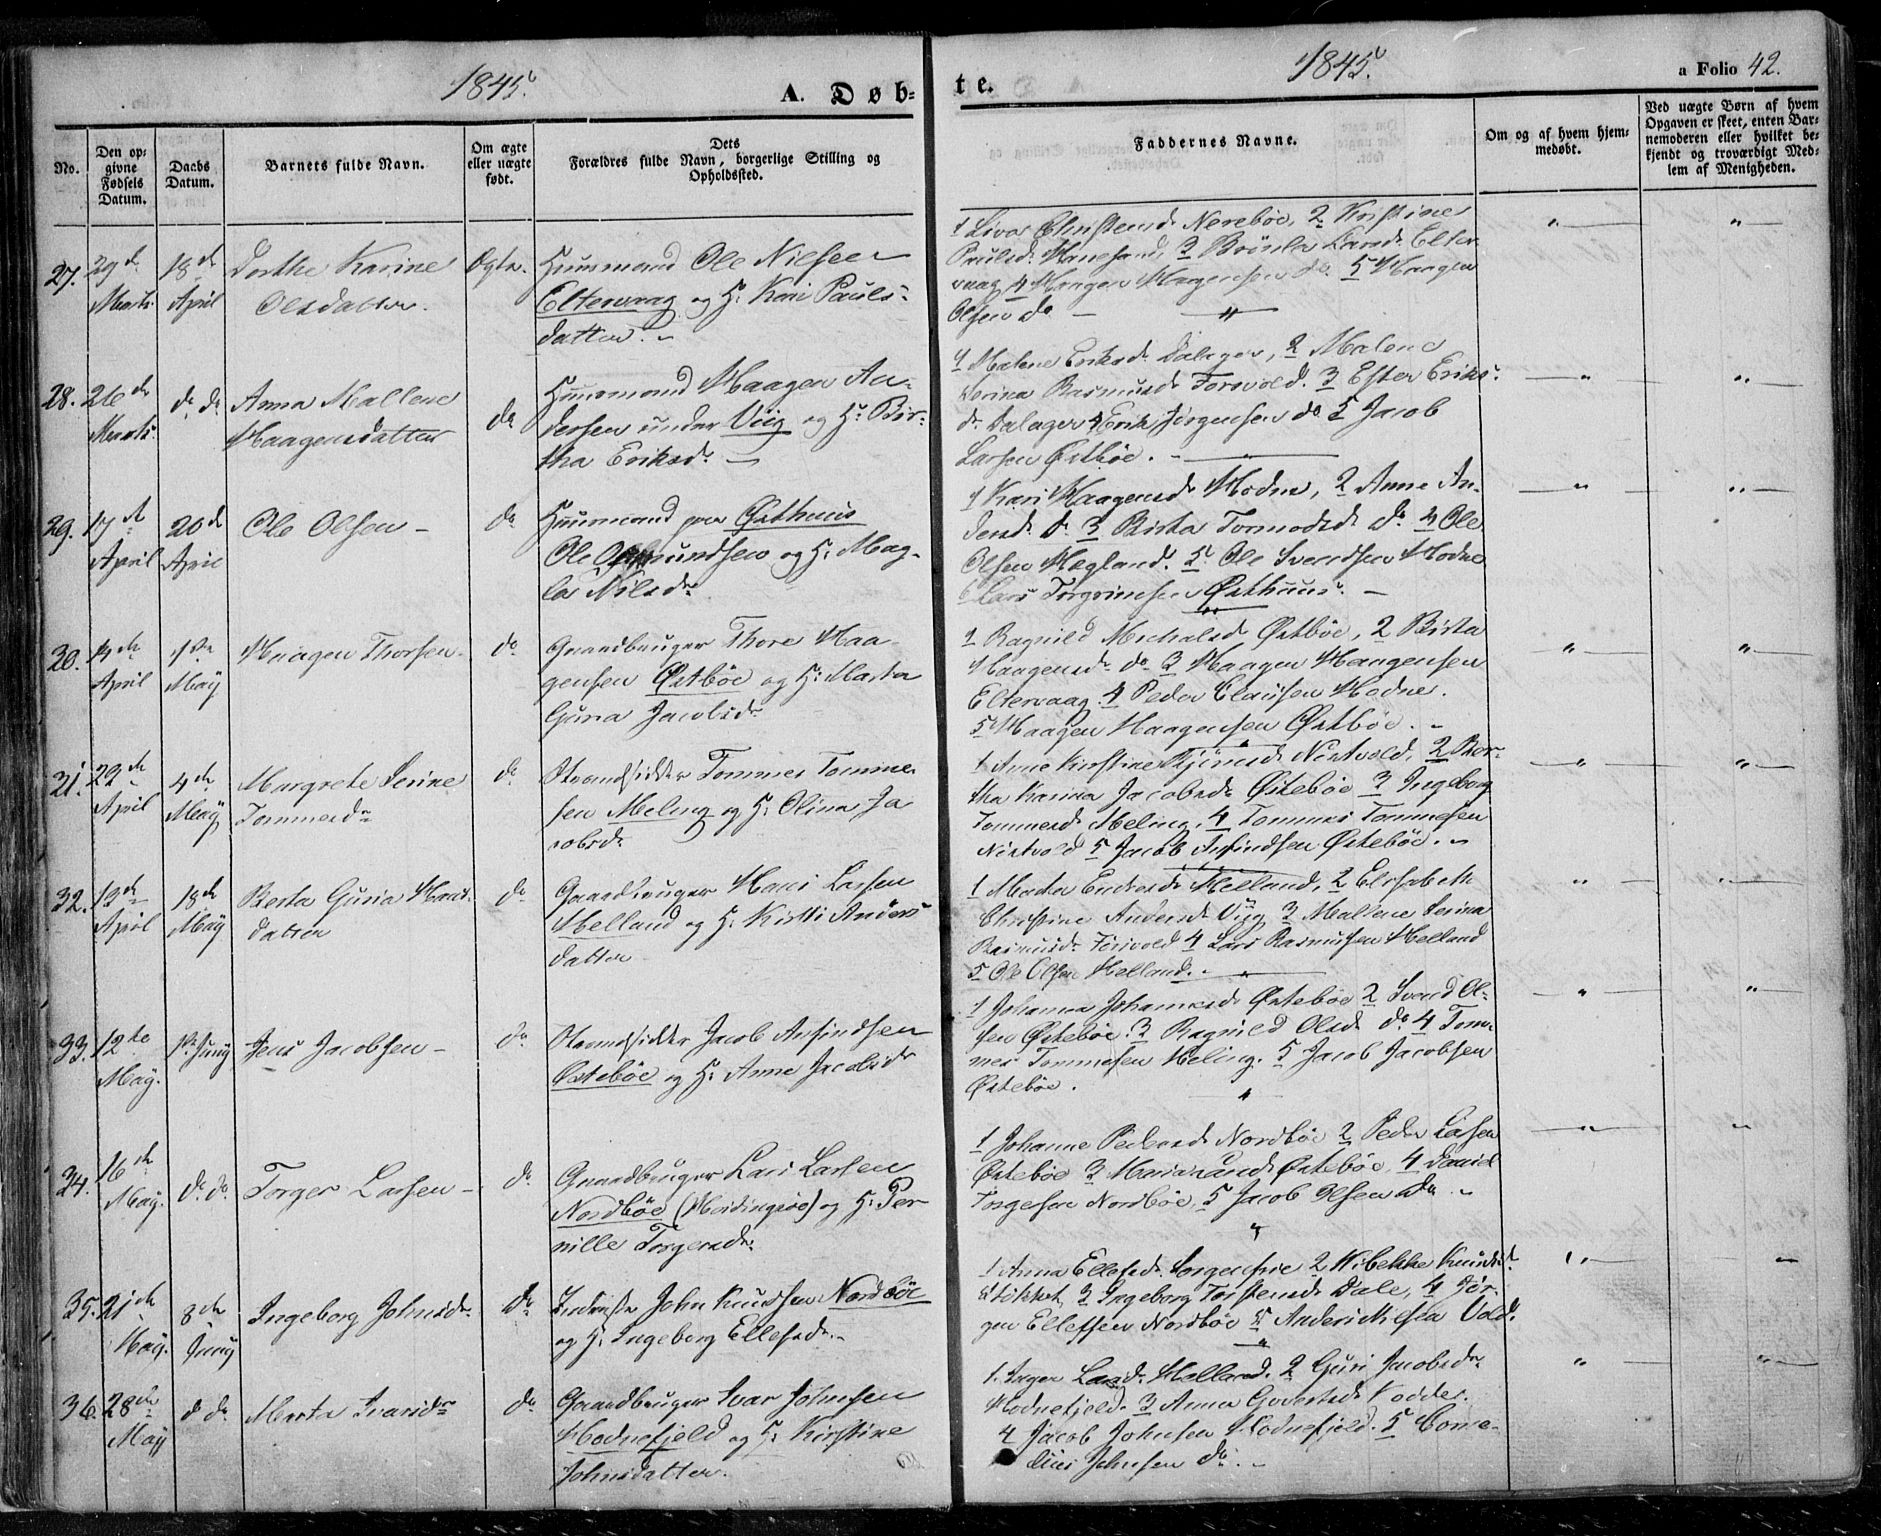 1845.
A. Døb-
te.
1845.
a Folio 42.
No.
Den op-
givne
Fødsels
Datum.
Daabs
Datum.
Barnets fulde Navn.
Om ægte
eller uægte
født.
Dets
Forældres fulde Navn, borgerlige Stilling og
Opholdssted.
Faddernes Navne.
Om og af hvem hjem-
medøbt.
Ved uægte Børn af hvem
Opgaven er skeet, enten Bar-
nemoderen eller hvilket be-
kjendt og troværdigt Med-
lem af Menigheden.
27. 29de Marts 18de April
Dorthe Karine
Olsdatter.
Ægte.
Huusmand Ole Nilsen
Eltervaag og H. Kari Pauls-
datter.
1 Sivor Christensd. Nerebøe, 2 Kirstine
Paulsd. Hanesand, 3 Larsd. Elter
vaag 4 Haagen Haagensen do. 5 Haagen
Olsen do
28. 26de Marts. do do
Anna Mallene
Haagensdatter
do
Huusmand Haagen An-
dersen under Viig og H. Bir-
tha Eriksd.
1 Malene Eriksd. Dalager, 2 Malene
Serina Rasmusd. Forsvold. 3 Ester Eriks-
d. Dalager 4 Erik Jørgensen do 5 Jacob
Larsen Østbøe.
29. 17de April 20de April
Ole Olsen
do
Huusmand paa Østhuus
Ole og H. Mag-
la Nilsdr
1 Kari Haagensd. Hodne, 2 Anne An-
dersd. do 3 Birta Tormodsd. do 4 Ole
Olsen Hegland. 5 Ole Svendsen Hodne
6 Lars Torgrimsen Østhuus.
30. 14de April 1ste May
Haagen Thorsen
do
Gaardbruger Thore Haa-
gensen Østbøe og H. Marta
Guria Jacobsdr
1 Ragnild Michalsd. Østbøe, 2 Birta
Haagensdr do 3 Haagen Haagensen
Eltervaag. 4 Peder Clausen Hodne.
5 Haagen Haagensen Østbøe.
31. 29de April 4de May
Margrete Serine
Tommesdr
do
Strandsidder Tommes Tomme-
sen Meling og H. Olina Ja
cobsdr
1 Anne Kirstine Nistvold, 2 Ber-
tha Karina Jacobsd. Østebøe 3 Ingeborg
Tommesd. Meling, 4 Tommes Tommesen
Nistvold 5 Jacob Arfindsen Østebøe.
32. 13de April 18de May
Berta Guria Hans-
datter
do
Gaardbruger Hans Larsen
Helland og H. Kirsti Anders
datter
1 Marta Endresd. Helland, 2 Elisabeth
Christine Andersd. Viig 3 Mallene Serina
Rasmusd. Forsvold 4 Lars Rasmussen Helland
5 Ole Olsen Helland.
33. 12te May. 1ste Juny
Jens Jacobsen
do
Strandsidder Jacob Arfindsen
Østebøe og H. Anne Jacobsdr
1 Johanna Johannesd. Østebøe 2 Svend Ol-
sen Østebøe. 3 Ragnild Olsd. do 4 Tom-
mes Tommesen Meling. 5 Jacob Jacobsen
Østebøe.
34. 16de May. do do
Torger Larsen
do
Gaardbruger Lars Larsen
Nordbøe og H. Per
nille Torgersdr
1 Johanne Pedersd. Nordbøe 2 Peder Larsen
Østebøe 3 Østebøe, 4 Daniel
Torgersen Nordbøe, 5 Jacob Olsen do
35. 21de May. 8de Juny
Ingeborg Johnsdr.
do
Inderste John Knudsen Nordbøe
og H. Ingeborg Ellefsdr.
1 Anna Ellefsd. 2 Wibekke Knudsd.
3 Ingeborg Torstensd. Dale, 4 Jør-
gen Ellefsen Nordbøe 5 Vold.
36. 28de May do do
Marta Ivarsdr
do
Gaardbruger Ivar Johnsen
Hodnefjeld og H. Kirstine
Johnsdatter.
1. Inger Larsd. Helland. 2 Guri Jacobsdr
Hodnefjeld. 3 Anna Govertsd. Hodde.
4 Jacob Johnsen Hodnefjeld. 5 Corne-
lius Johnsen do.